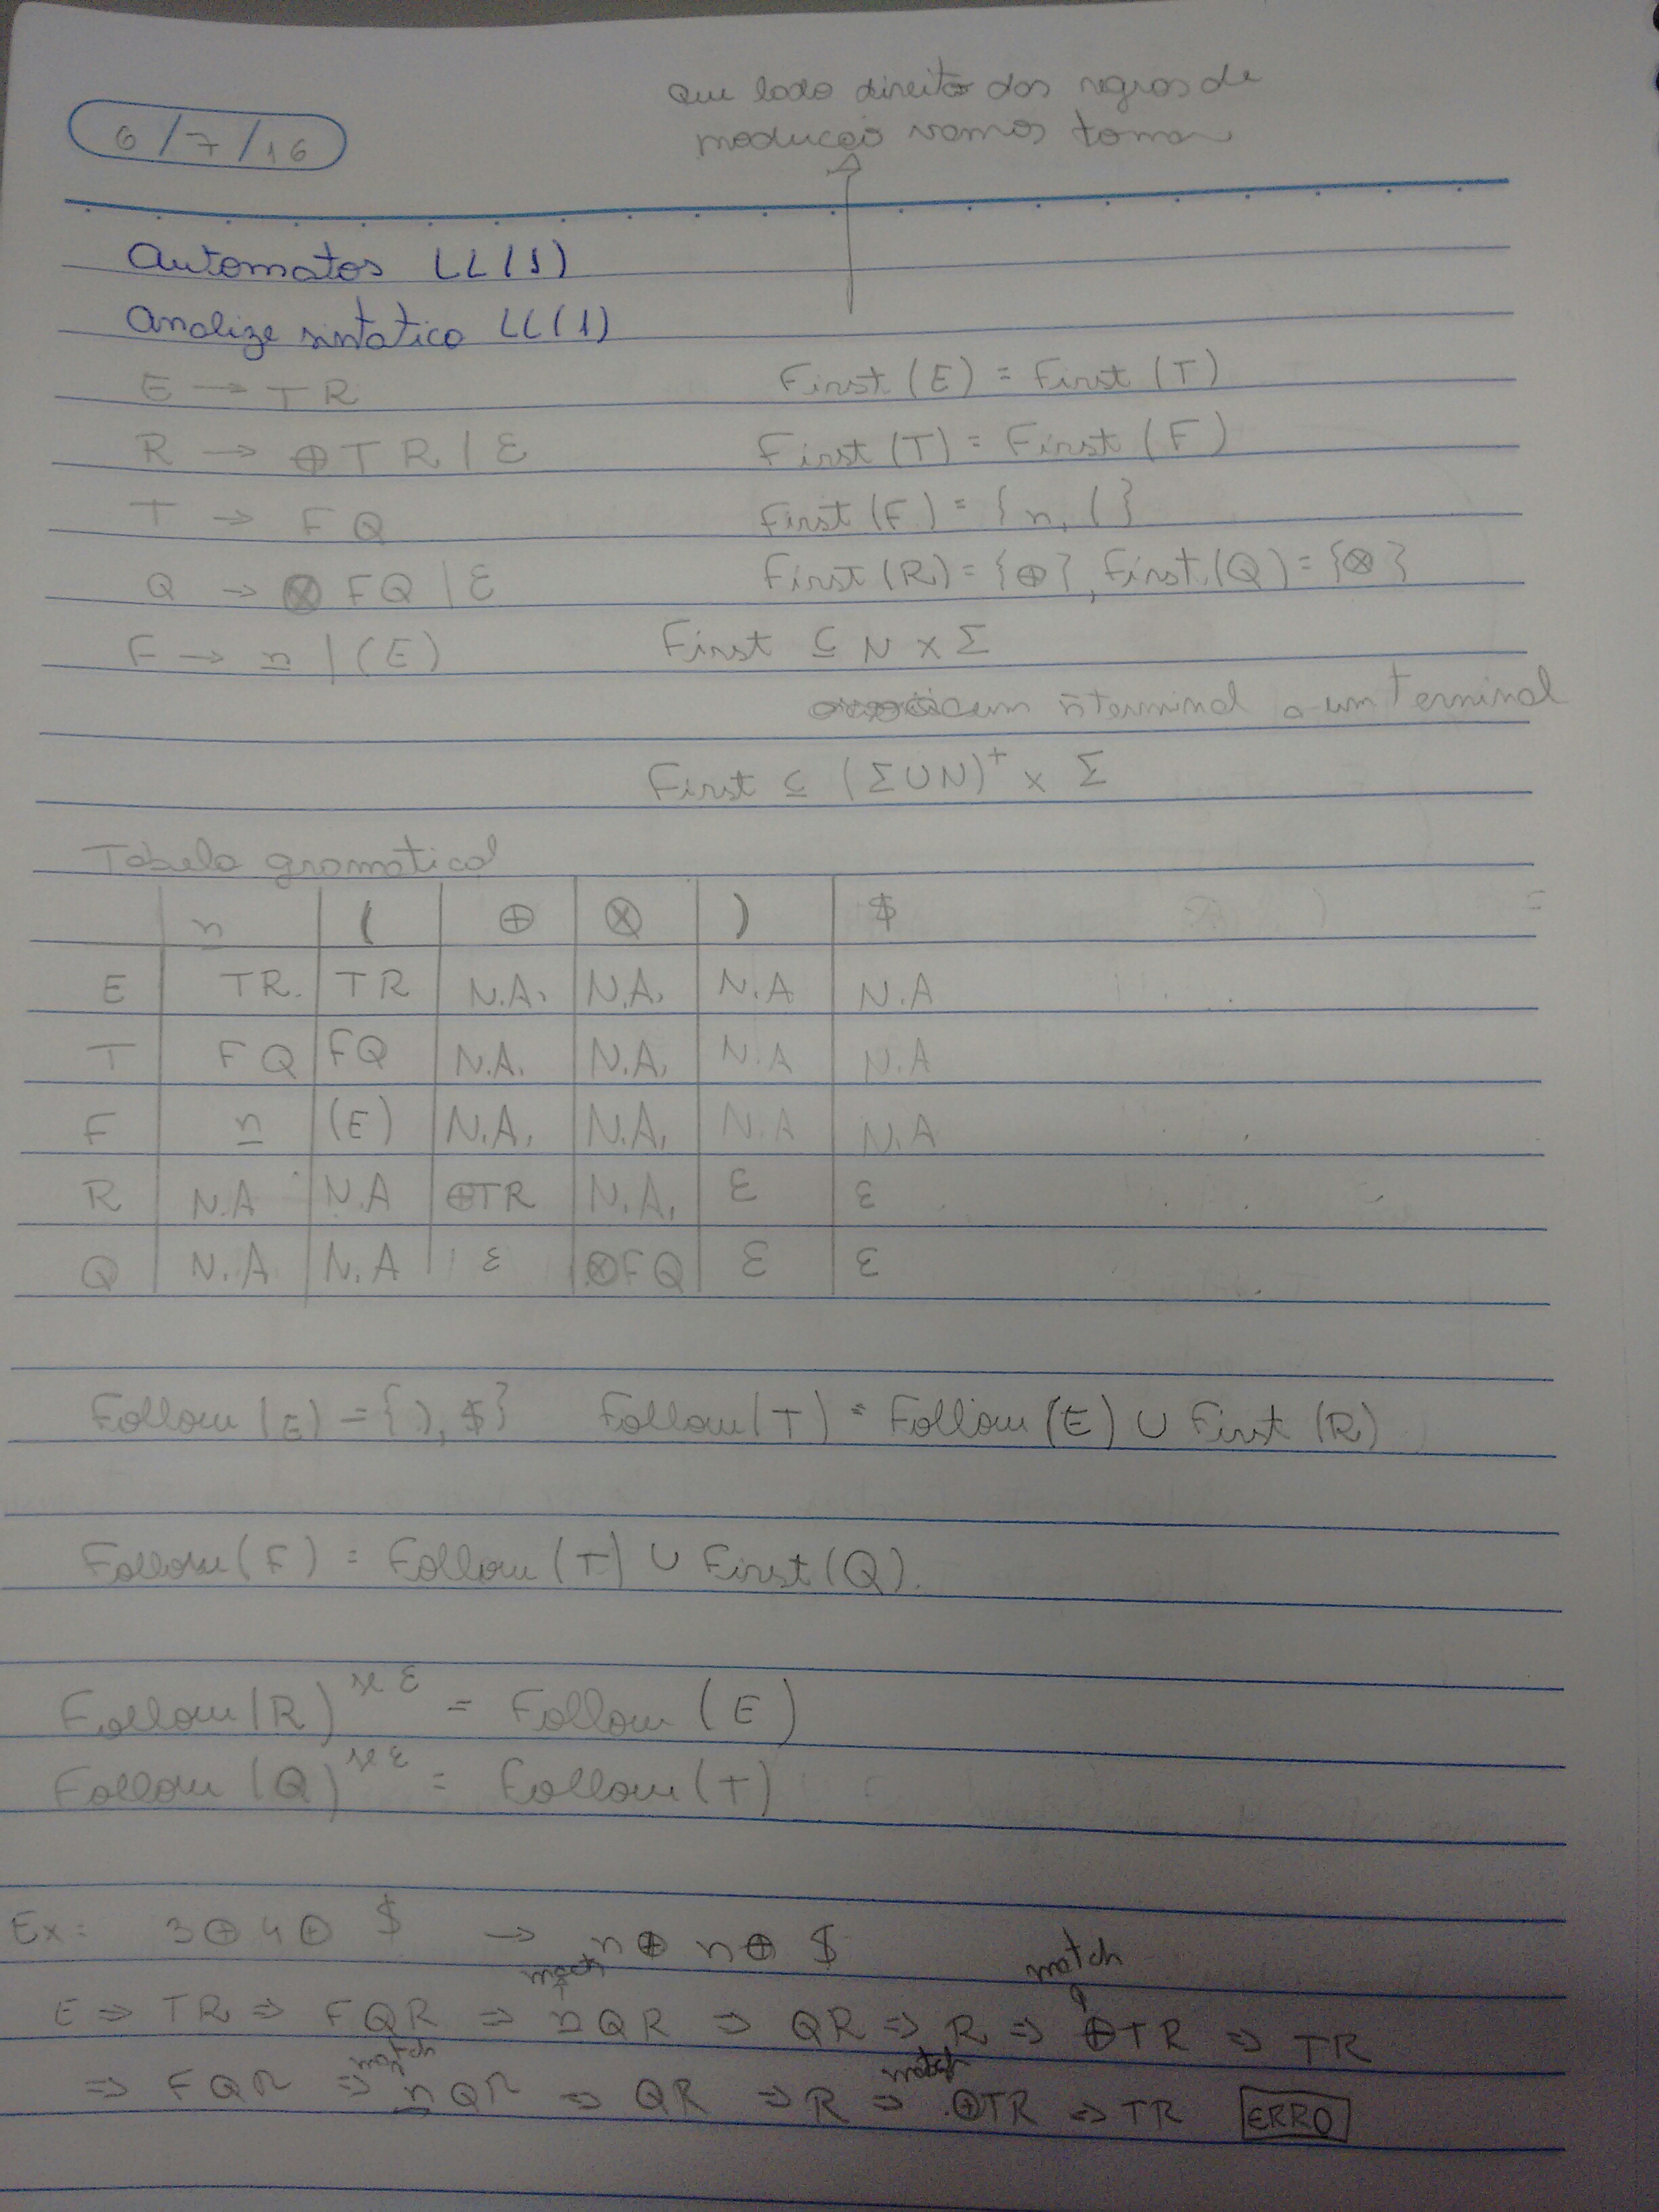 que lado direito das regras de
produção vamos tomar
6/7/16
Automatos LL(1)
Analize sintatico LL(1)
E → TR First(E) = First(T)
R → ⊕TR | ε First(T) = First(F)
T → FQ First(F) = {n, (}
Q → ⊗FQ | ε First(R) = {⊕}, First(Q) = {⊗}
F → n | (E) First ⊆ N x Σ
um ñ terminal a um terminal
First ⊆ (Σ∪N)⁺ x Σ
Tabela gramatical
n ( ⊕ ⊗ ) $
E TR. TR N.A. N.A. N.A N.A
T FQ FQ N.A. N.A. N.A N.A
F n (E) N.A. N.A. N.A N.A
R N.A N.A ⊕TR N.A. ε ε
Q N.A N.A ε ⊗FQ ε ε
Follow(E) = {), $} Follow(T) = Follow(E) ∪ First(R)
Follow(F) = Follow(T) ∪ First(Q).
Follow(R) se ε = Follow(E)
Follow(Q) se ε = Follow(T)
Ex: 3⊕4⊕ $ → n⊕ n⊕ $
match match
E ⇒ TR ⇒ FQR ⇒ nQR ⇒ QR ⇒ R ⇒ ⊕TR ⇒ TR
match match
⇒ FQR ⇒ nQR ⇒ QR ⇒ R ⇒ ⊕TR ⇒ TR ERRO